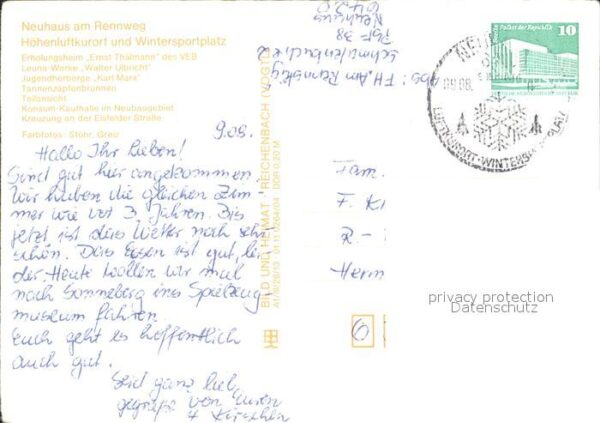 Neuhaus am Rennweg
Höhenluftkurort und Wintersportplatz
Erholungsheim „Ernst Thälmann" des VEB
Leuna-Werke „Walter Ulbricht"
Jugendherberge „Karl Marx"
Tannenzapfenbrunnen
Teilansicht
Konsum-Kaufhalle im Neubaugebiet
Kreuzung an der Eisfelder Straße
Farbfotos: Stöhr, Greiz
9.08.
Hallo Ihr Lieben!
Sind gut hier angekommen.
Wir haben die gleichen Zim-
mer wie vor 3 Jahren. Bis
jetzt ist das Wetter noch sehr
schön. Das Essen ist gut, lei
der. Heute wollen wir mal
nach Sonneberg ins Spielzeug-
museum fahren.
Euch geht es hoffentlich
auch gut.
Seid ganz lieb
gegrüßt von Euren
4 Kirschen
BILD UND HEIMAT REICHENBACH (VOGTL)
DDR 0,20 M
Abs: FH. Am Rennsteig
PSF 38
Neuhaus
6420
Palast der Republik
10
09.08.
LUFTKURORT-WINTERSPORTPLATZ
Fam.
F. K
R.-
Herm
6
privacy protection
Datenschutz